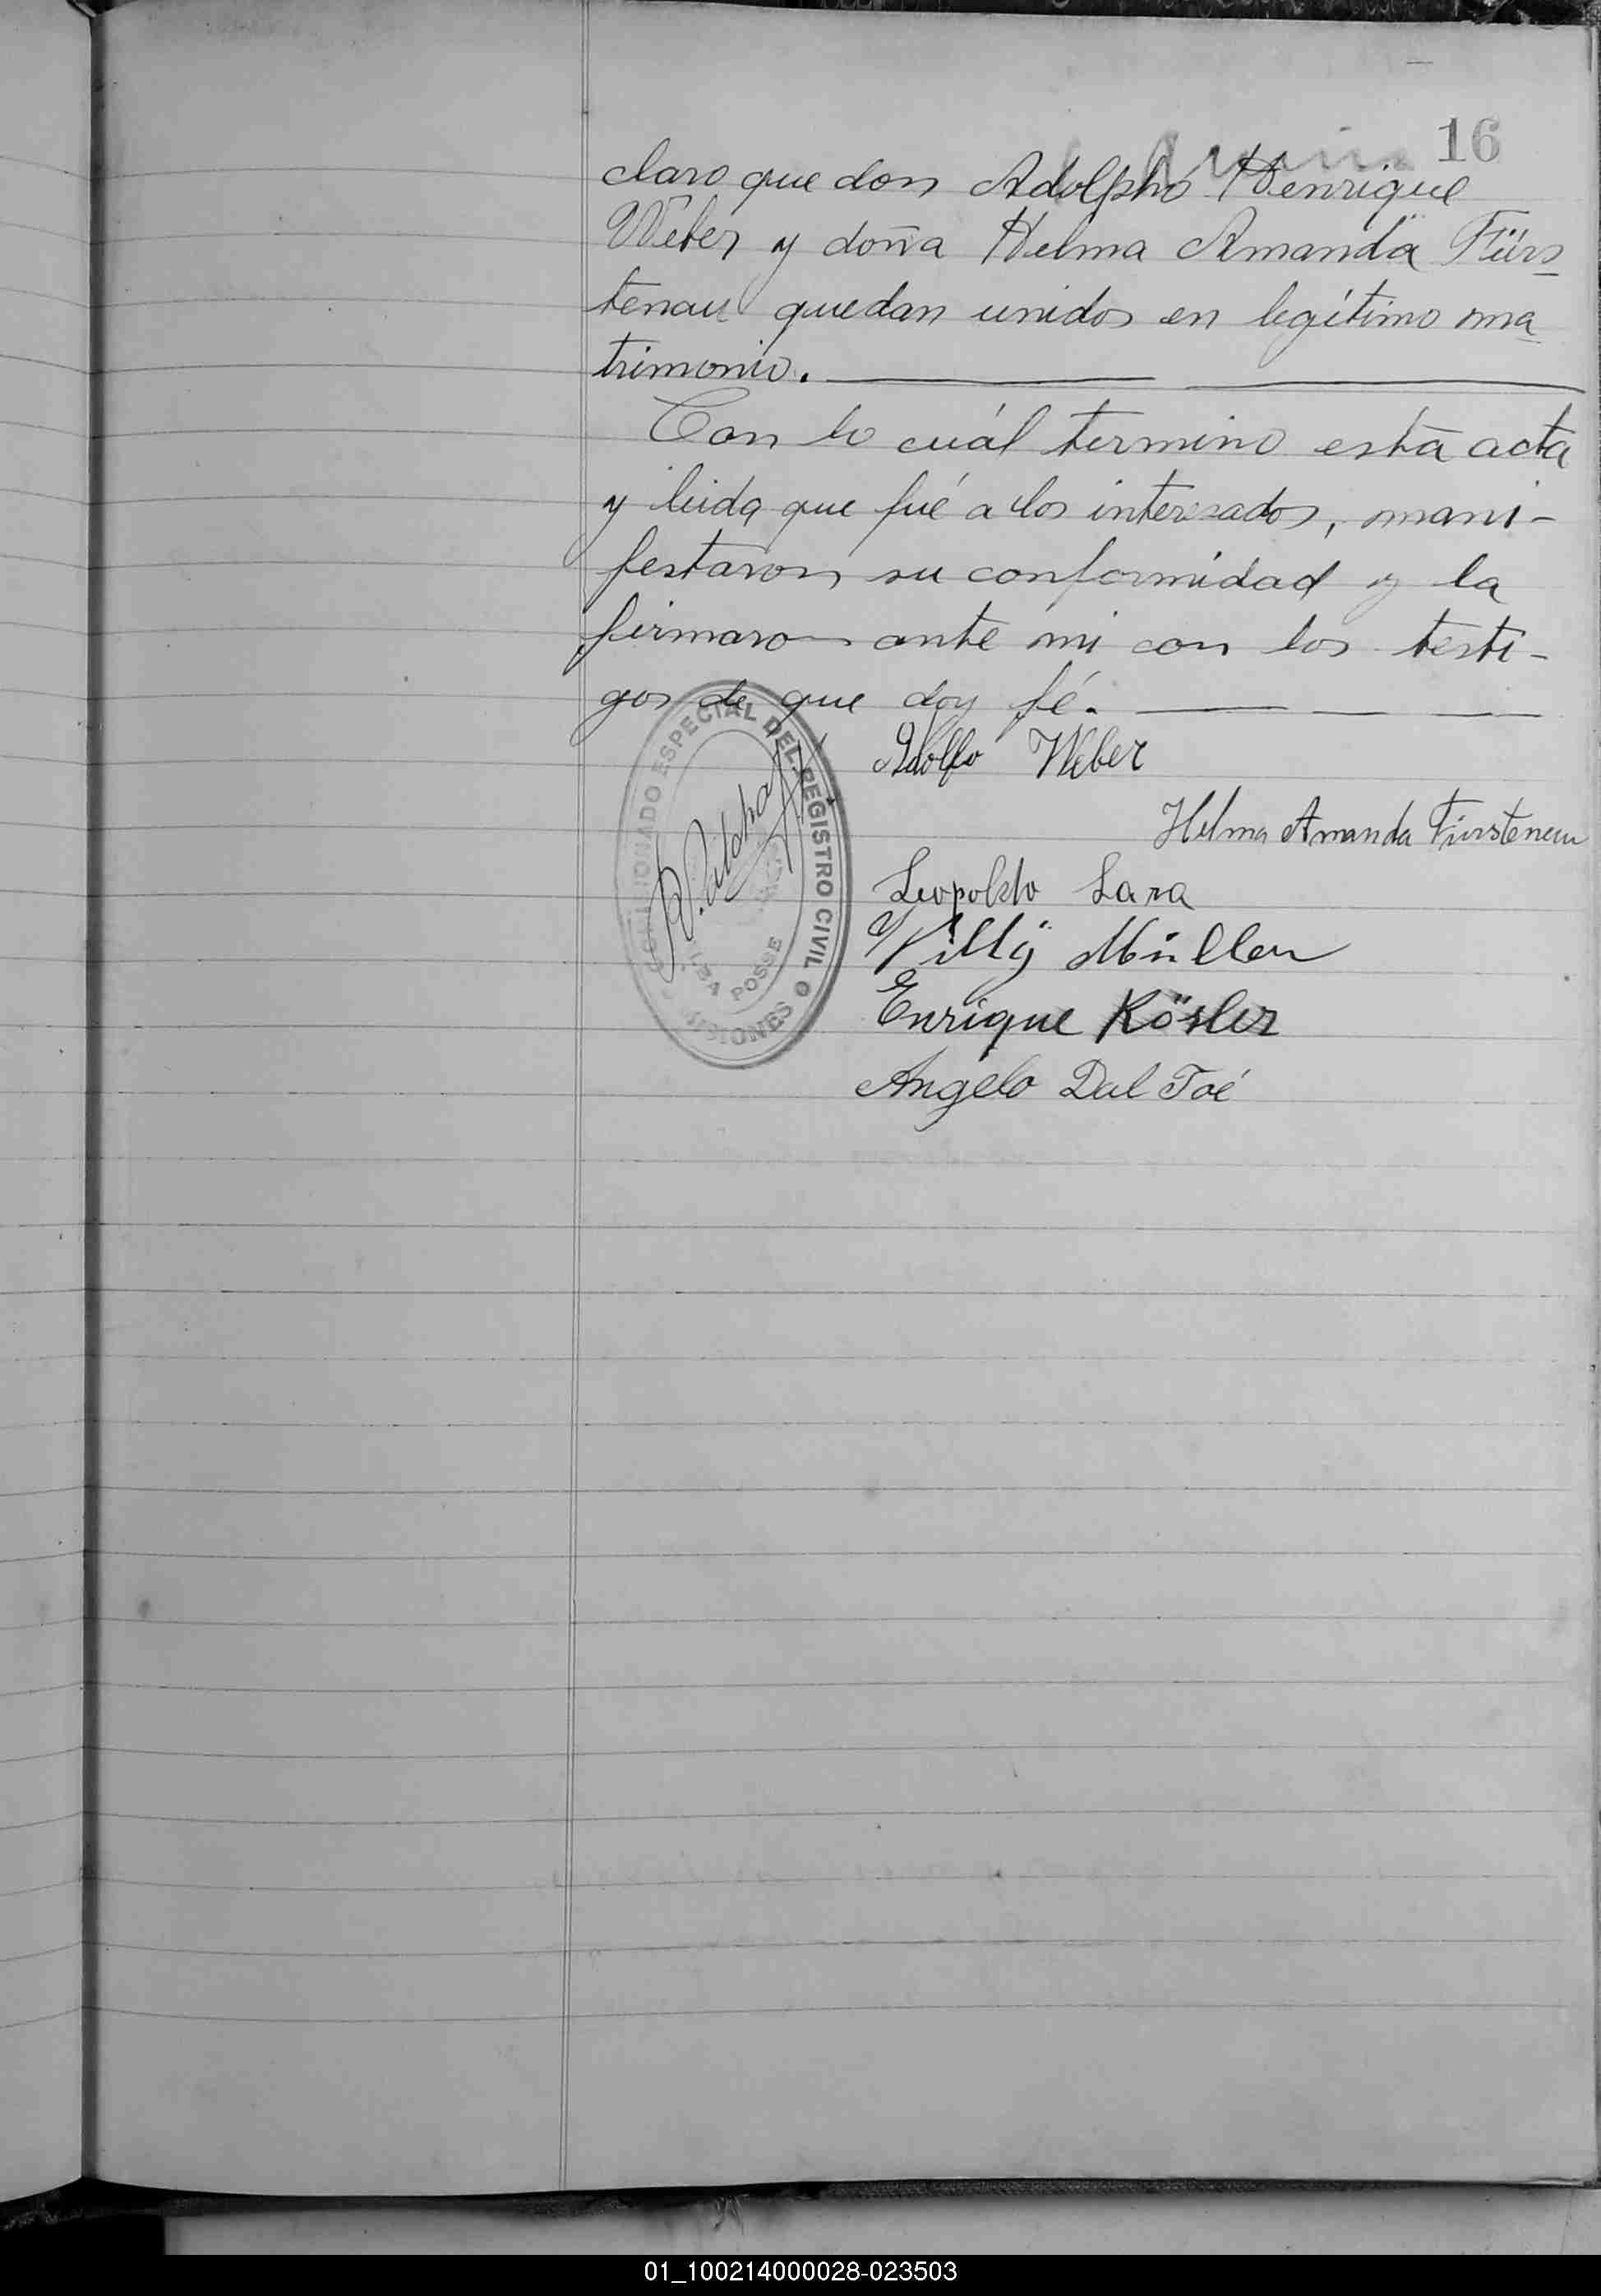 16
claro que don Adolpho Henrique
Weber y doña Helma Amanda Fürs-
tenau quedan unidos en legítimo ma-
trimonio.
Con lo cuál termino esta acta
y leida que fué a los interesados, mani-
festaron su conformidad y la
firmaron ante mi con los testi-
gos de que doy fé.
Adolfo Weber
Helma Amanda Fürstenau
Leopoldo Lara
Willy Müller
Enrique Kösler
Angelo Dal Toé
COMISIONADO ESPECIAL DEL REGISTRO CIVIL
POSSE
MISIONES
01_100214000028-023503